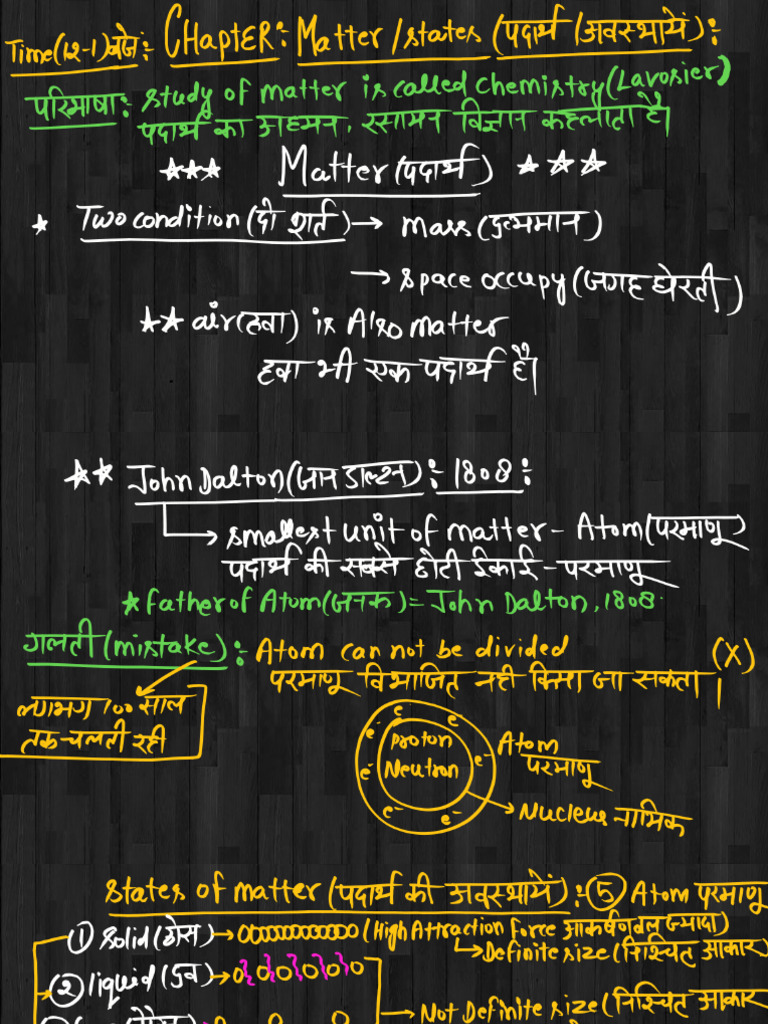 Time(12-1)बजे:- CHAPTER:- Matter/states (पदार्थ/अवस्थायें):-
परिभाषा:- study of matter is called chemistry (Lavosier)
पदार्थ का अध्ययन, रसायन विज्ञान कहलाता है।
*** Matter (पदार्थ) ***
* Two condition (दो शर्त) → Mass (द्रव्यमान)
→ space occupy (जगह घेरती)
** air (हवा) is Also matter
हवा भी एक पदार्थ है।
** John Dalton (जान डाल्टन):- 1808:
→ smallest unit of matter - Atom (परमाणू)
पदार्थ की सबसे छोटी ईकाई - परमाणू
* father of Atom (जनक) = John Dalton, 1808.
गलती (mistake):- Atom can not be divided (X)
परमाणू विभाजित नही किया जा सकता।
लगभग 100 साल
तक चलती रही
e⁻ e⁻ e⁻ e⁻ e⁻ e⁻ e⁻
Proton
Neutron
Atom
परमाणू
→ Nucleus नाभिक
states of matter (पदार्थ की अवस्थायें):- 5 Atom परमाणू
1 solid (ठोस) → (High Attraction Force आकर्षण बल ज्यादा)
→ Definite size (निश्चित आकार)
2 liquid (द्रव) →
→ Not Definite size (निश्चित आकार